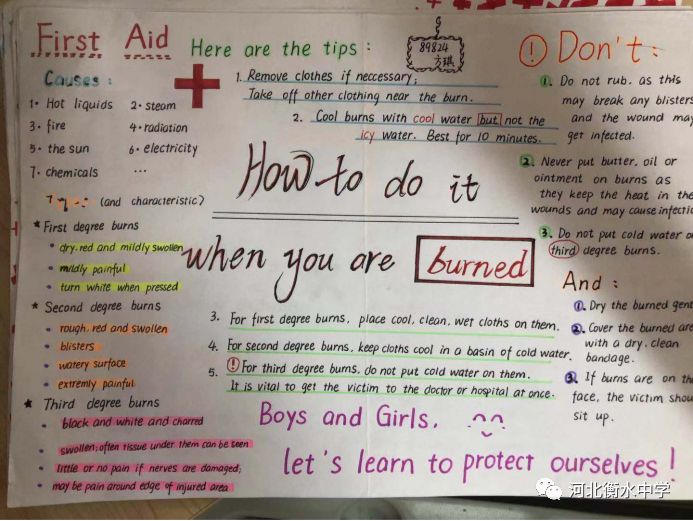 First Aid
Causes :
1. Hot liquids 2. steam
3. fire 4. radiation
5. the sun 6. electricity
7. chemicals ...
Types (and characteristic)
★ First degree burns
• dry.red and mildly swollen
• mildly painful
• turn white when pressed
★ Second degree burns
• rough, red and swollen
• blisters
• watery surface
• extremly painful
★ Third degree burns
• black and white and charred
• swollen; often tissue under them can be seen
• little or no pain if nerves are damaged;
• may be pain around edge of injured area
Here are the tips :
89824
方琪
1. Remove clothes if neccessary;
Take off other clothing near the burn.
2. Cool burns with cool water but not the
icy water. Best for 10 minutes.
How to do it
when you are burned
3. For first degree burns, place cool, clean, wet cloths on them.
4. For second degree burns, keep cloths cool in a basin of cold water.
5. ! For third degree burns, do not put cold water on them.
It is vital to get the victim to the doctor or hospital at once.
Boys and Girls,
let's learn to protect ourselves !
! Don't :
1. Do not rub, as this
may break any blisters
and the wound may
get infected.
2. Never put butter, oil or
ointment on burns as
they keep the heat in the
wounds and may cause infectio
3. Do not put cold water o
third degree burns.
And :
1. Dry the burned gent
2. Cover the burned are
with a dry, clean
bandage.
3. If burns are on th
face, the victim shou
sit up.
河北衡水中学